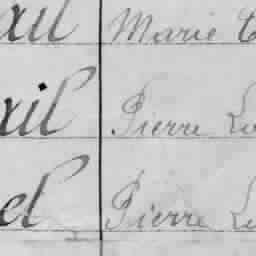 ail Marie
xil Pierre L
el Pierre L